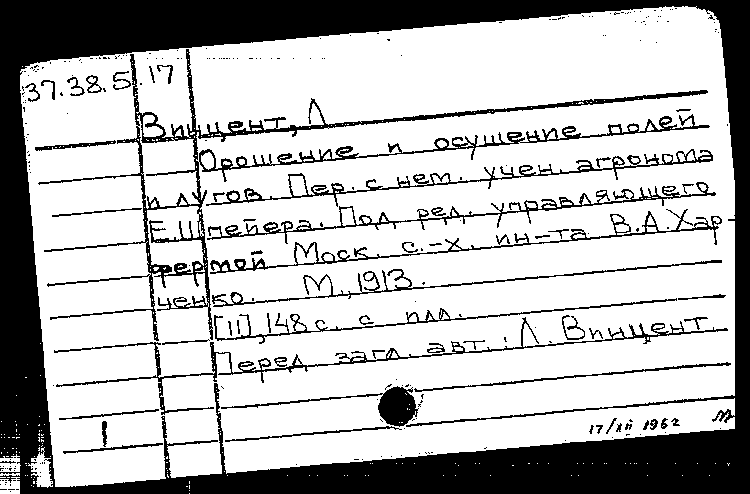 37.38.5.17
Винцент, Л
Орошение и осушение полей
и лугов. Пер. с нем. учен. агронома
Е.Шпейера. Под ред. управляющего
фермой Моск. с.-х. ин-та В.А.Хар-
ченко. М., 1913.
[II], 148 с. с илл.
Перед загл. авт.: Л. Винцент.
1
17/XII 1962